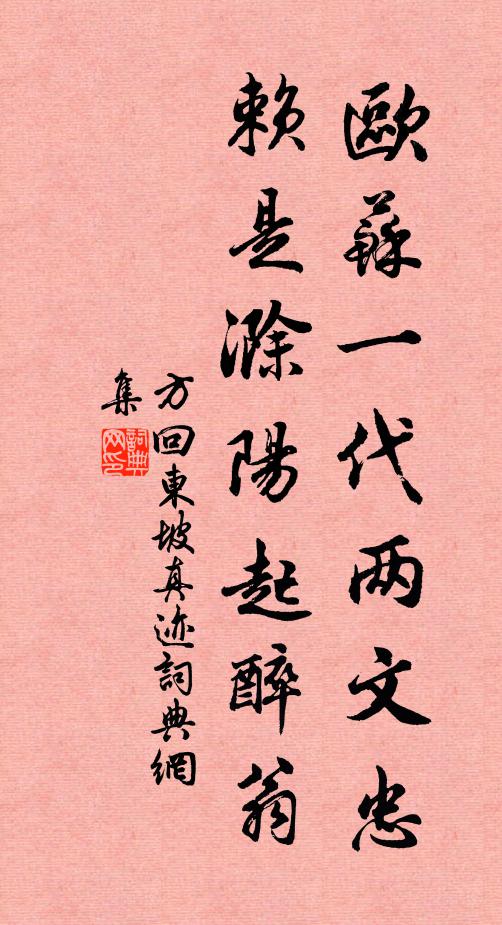 歐蘇一代两文忠
賴是滁陽起醉翁
方回東坡真迹詞典網
集
詞典网印